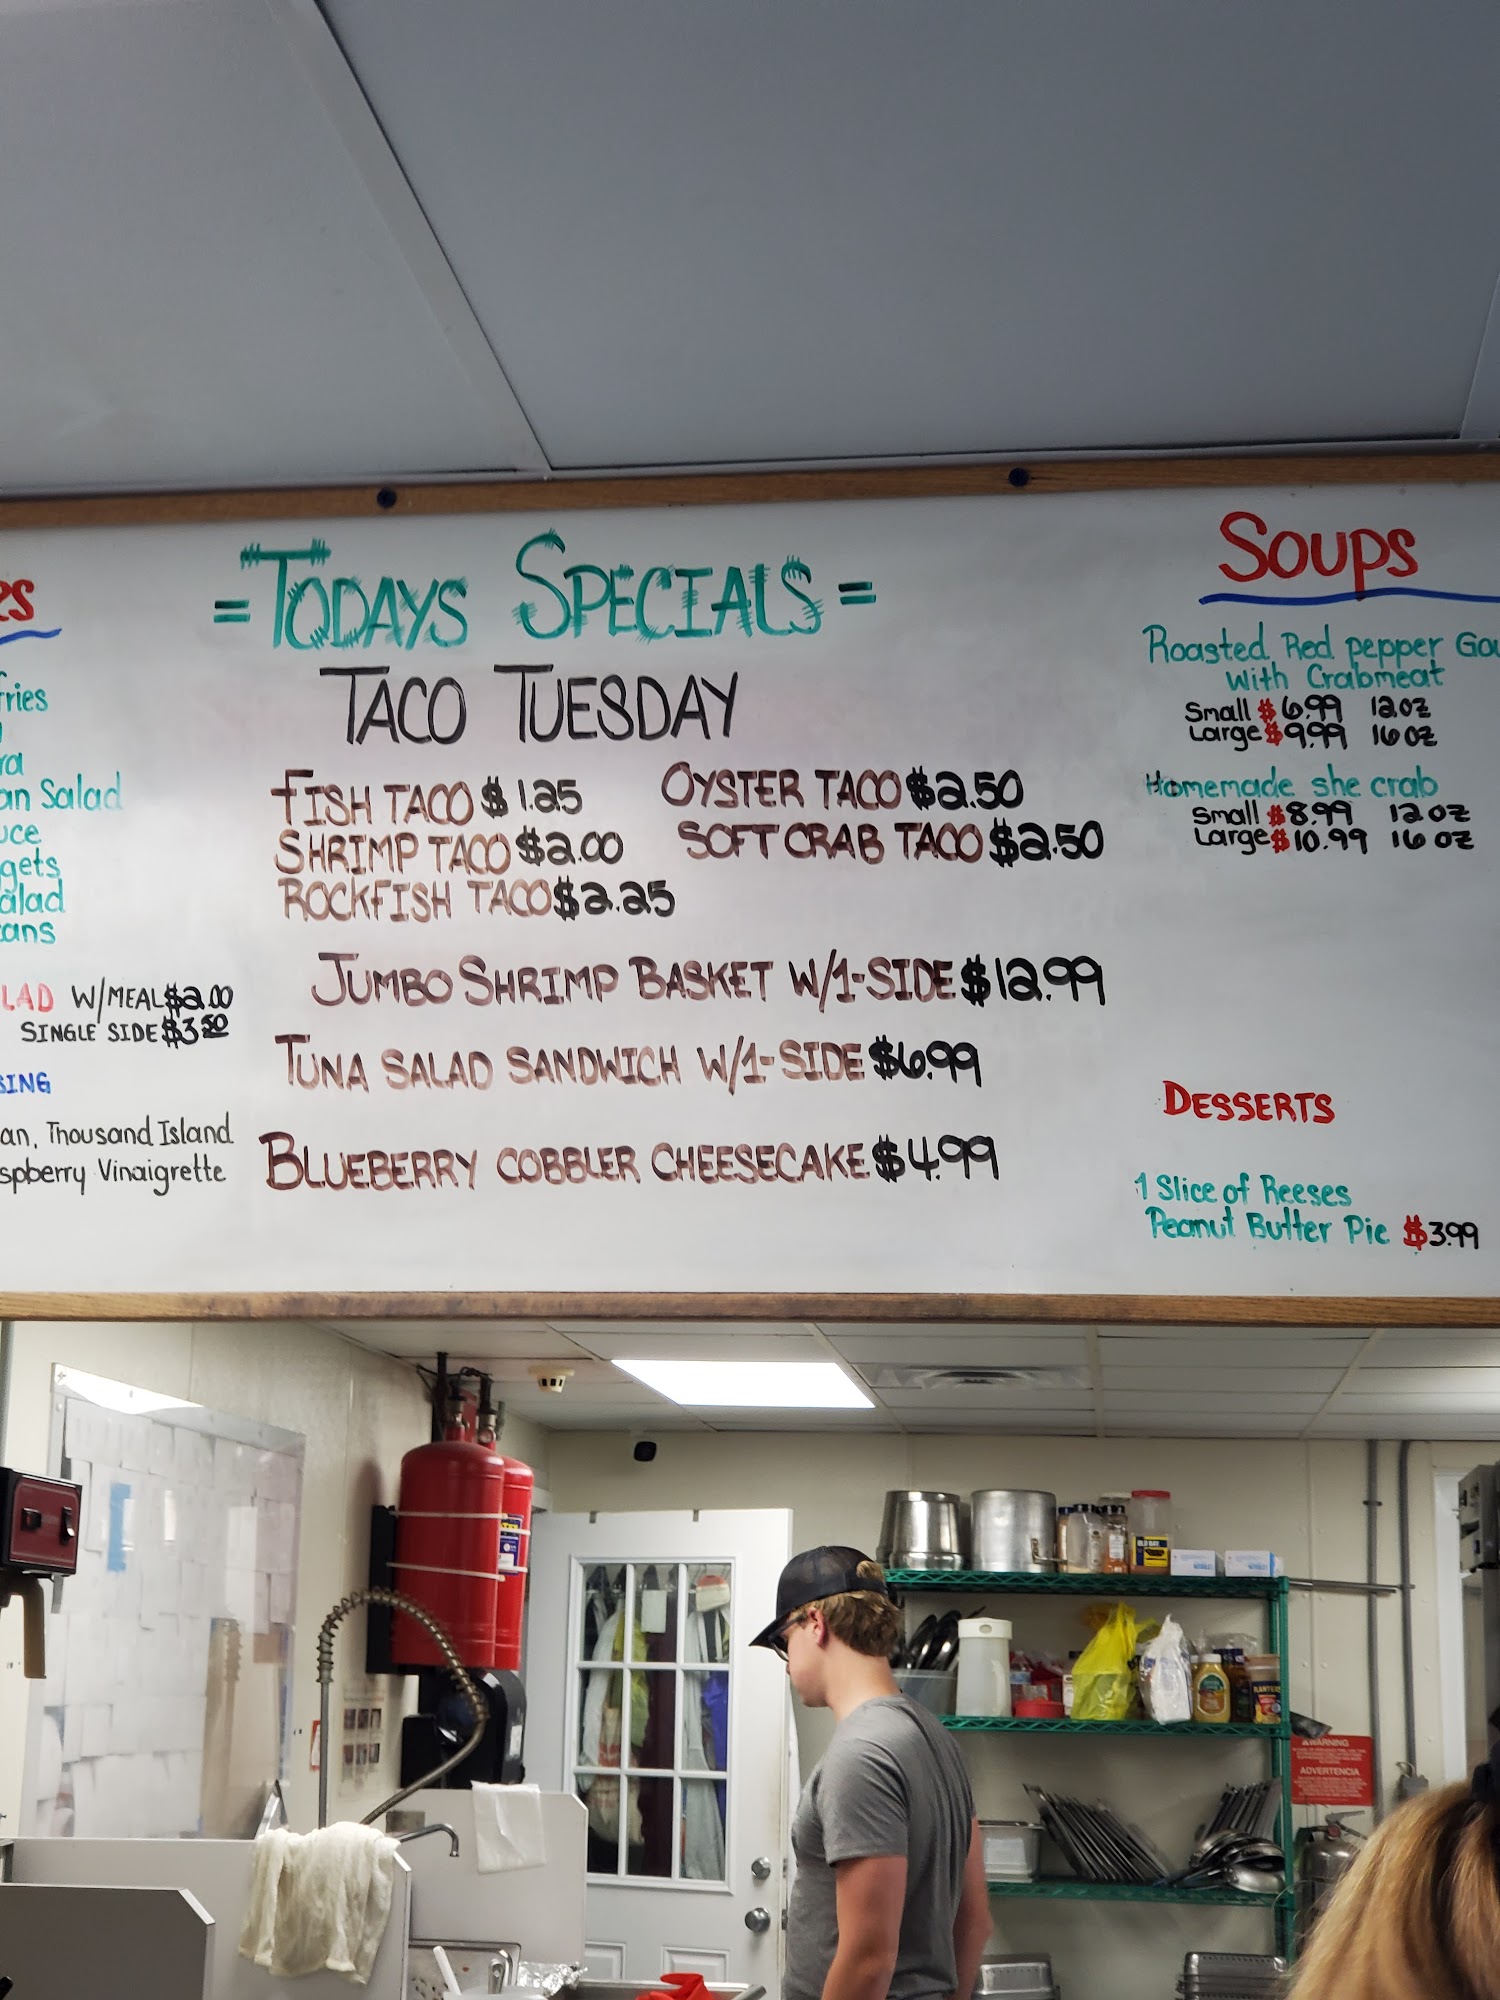 =TODAYS SPECIALS=
TACO TUESDAY
FISH TACO $1.25
SHRIMP TACO $2.00
ROCKFISH TACO $2.25
OYSTER TACO $2.50
SOFT CRAB TACO $2.50
JUMBO SHRIMP BASKET W/1-SIDE $12.99
TUNA SALAD SANDWICH W/1-SIDE $6.99
BLUEBERRY COBBLER CHEESECAKE $4.99
es
fries
ra
an Salad
uce
gets
alad
eans
LAD W/MEAL $2.00
SINGLE SIDE $3.50
SING
an, Thousand Island
spberry Vinaigrette
SOUPS
Roasted Red pepper Gou
with Crabmeat
Small $6.99 12oz
Large $9.99 16oz
Homemade she crab
Small $8.99 12oz
Large $10.99 16oz
DESSERTS
1 Slice of Reeses
Peanut Butter Pie $3.99
OLD BAY
PLANTERS
WARNING
ADVERTENCIA